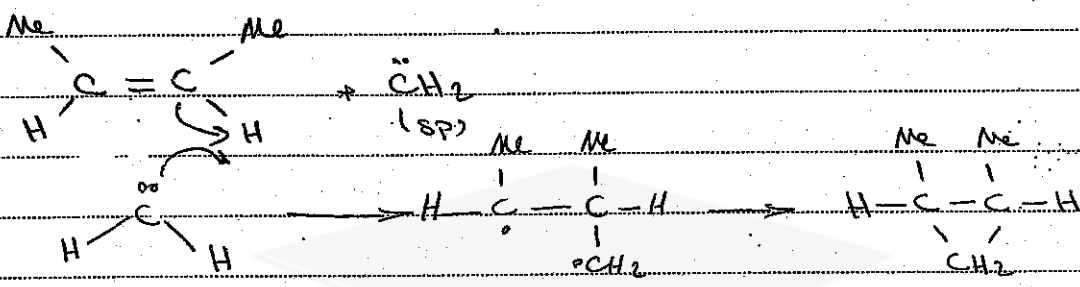 Me Me
C = C + C̈H2
H H (sp)
Me Me Me Me
C̈ H – C – C – H H – C – C – H
H H •CH2 CH2